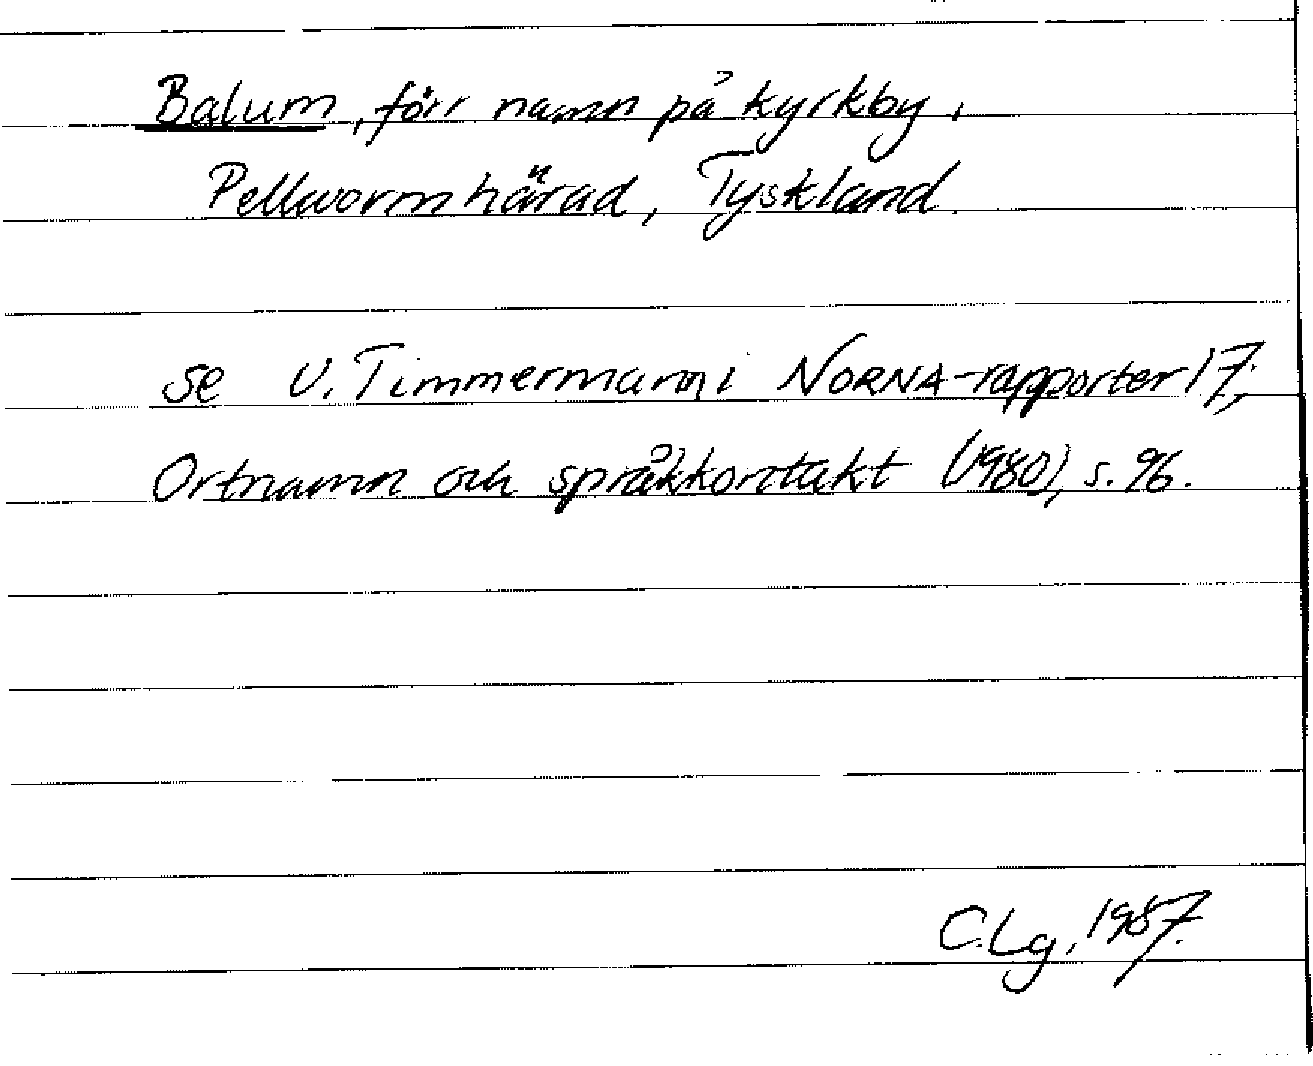 Balum, förr namn på kyrkby,
Pellworm härad, Tyskland.
se U. Timmermann i NORNA-rapporter 17;
Ortnamn och språkkontakt (1980), s. 96.
C. Lg, 1987.